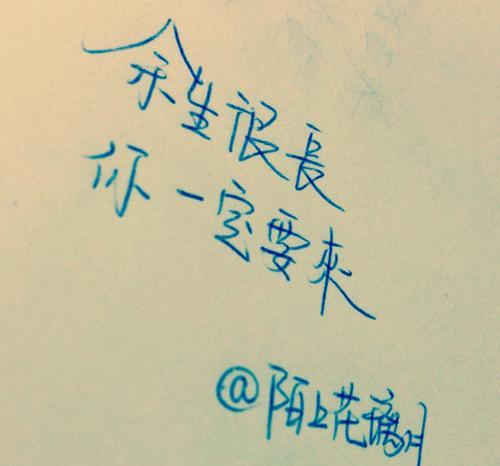 余生很長
你一定要來
@陌上花璃月